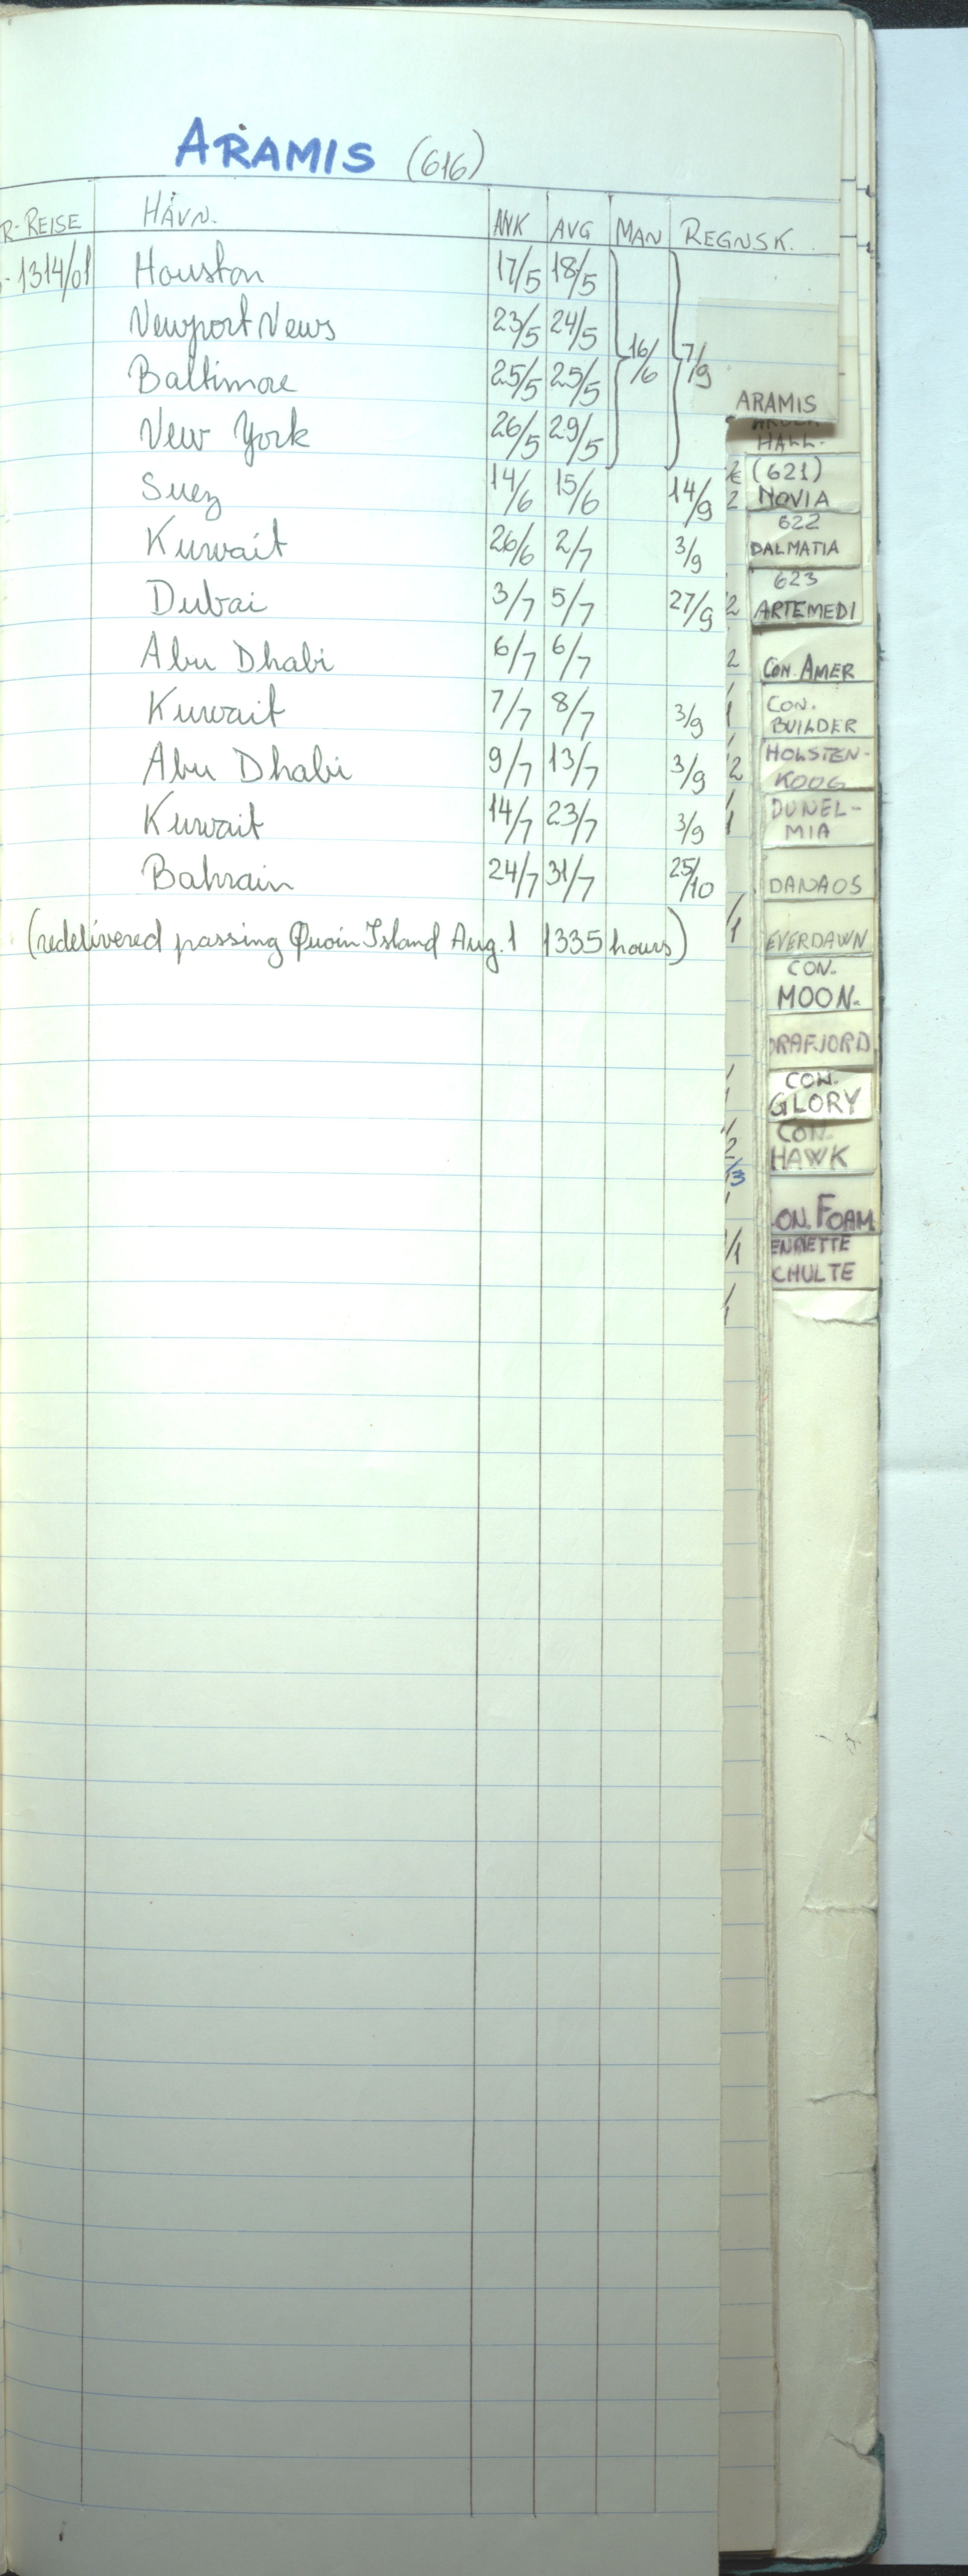 ARAMIS (616)
R-REISE HAVN. ANK AVG MAN REGNSK.
-1314/01 Houston 17/5 18/5
Newport News 23/5 24/5
16/6 7/9
Baltimore 25/5 25/5
New York 26/5 29/5
Suez 14/6 15/6 14/9
Kuwait 26/6 2/7 3/9
Dubai 3/7 5/7 27/9
Abu Dhabi 6/7 6/7
Kuwait 7/7 8/7 3/9
Abu Dhabi 9/7 13/7 3/9
Kuwait 14/7 23/7 3/9
Bahrain 24/7 31/7 25/10
(redelivered passing Quoin Island Aug. 1 1335 hours)
ARAMIS
HALL.
(621)
NOVIA
622
DALMATIA
623
ARTEMEDI
CON. AMER
CON.
BUILDER
HOLSTEN-
KOOG
DUNEL-
MIA
DANAOS
EVERDAWN
CON.
MOON.
DRAFJORD
CON.
GLORY
CON.
HAWK
ON. FOAM
ENRIETTE
CHULTE